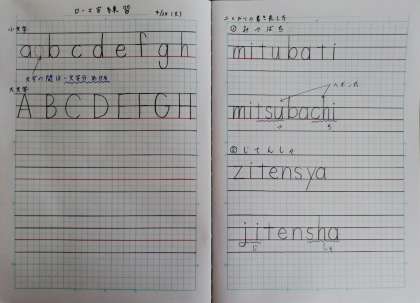 ローマ字練習 4/28(火)
小文字
a b c d e f g h
文字の間は一文字分あける
大文字
A B C D E F G H
二とおりの書き表し方
① みつばち
mitubati
ヘボン式
mitsubachi
つ ち
② じてんしゃ
zitensya
jitensha
じ しゃ